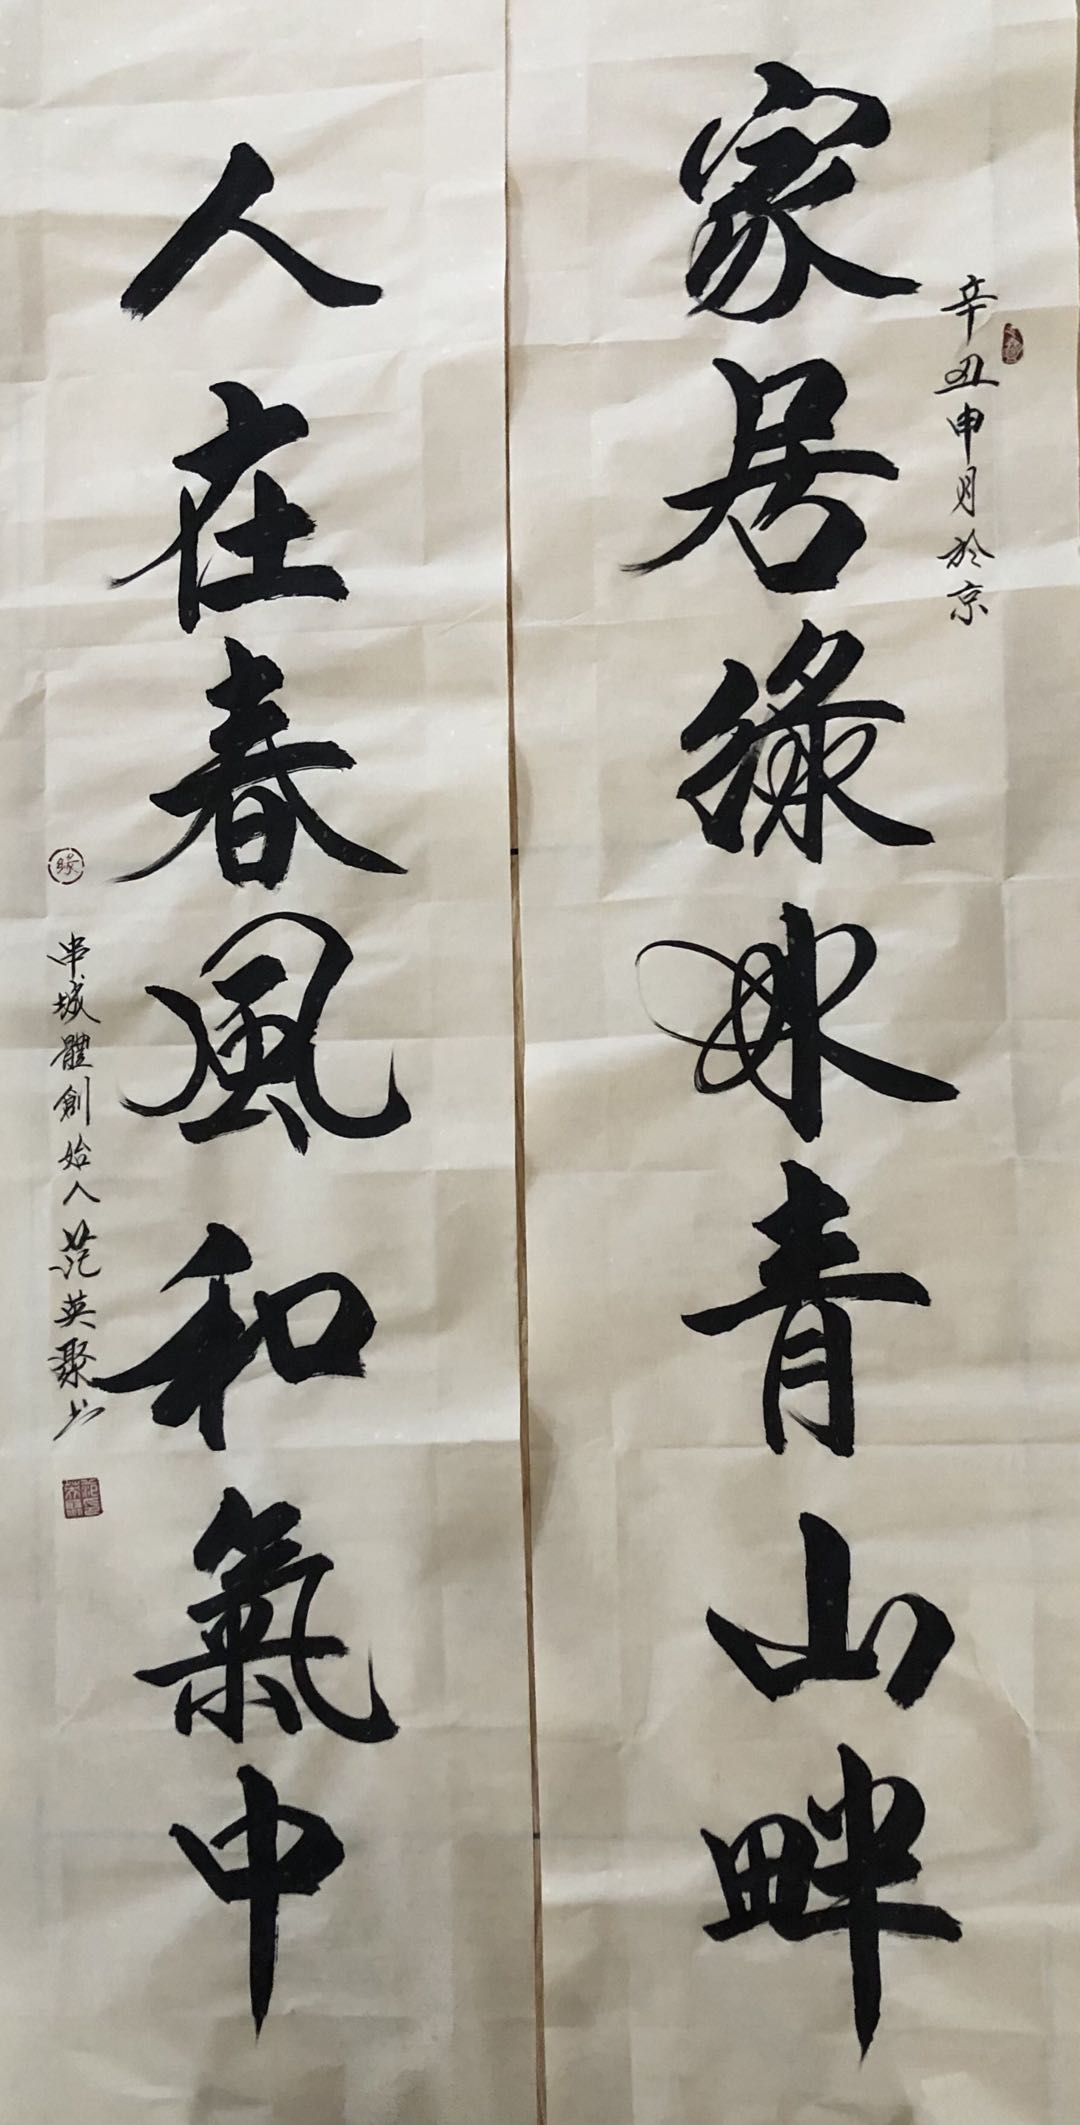 家居綠水青山畔
辛丑申月於京
人在春風和氣中
串城體創始人范英聚书
緣